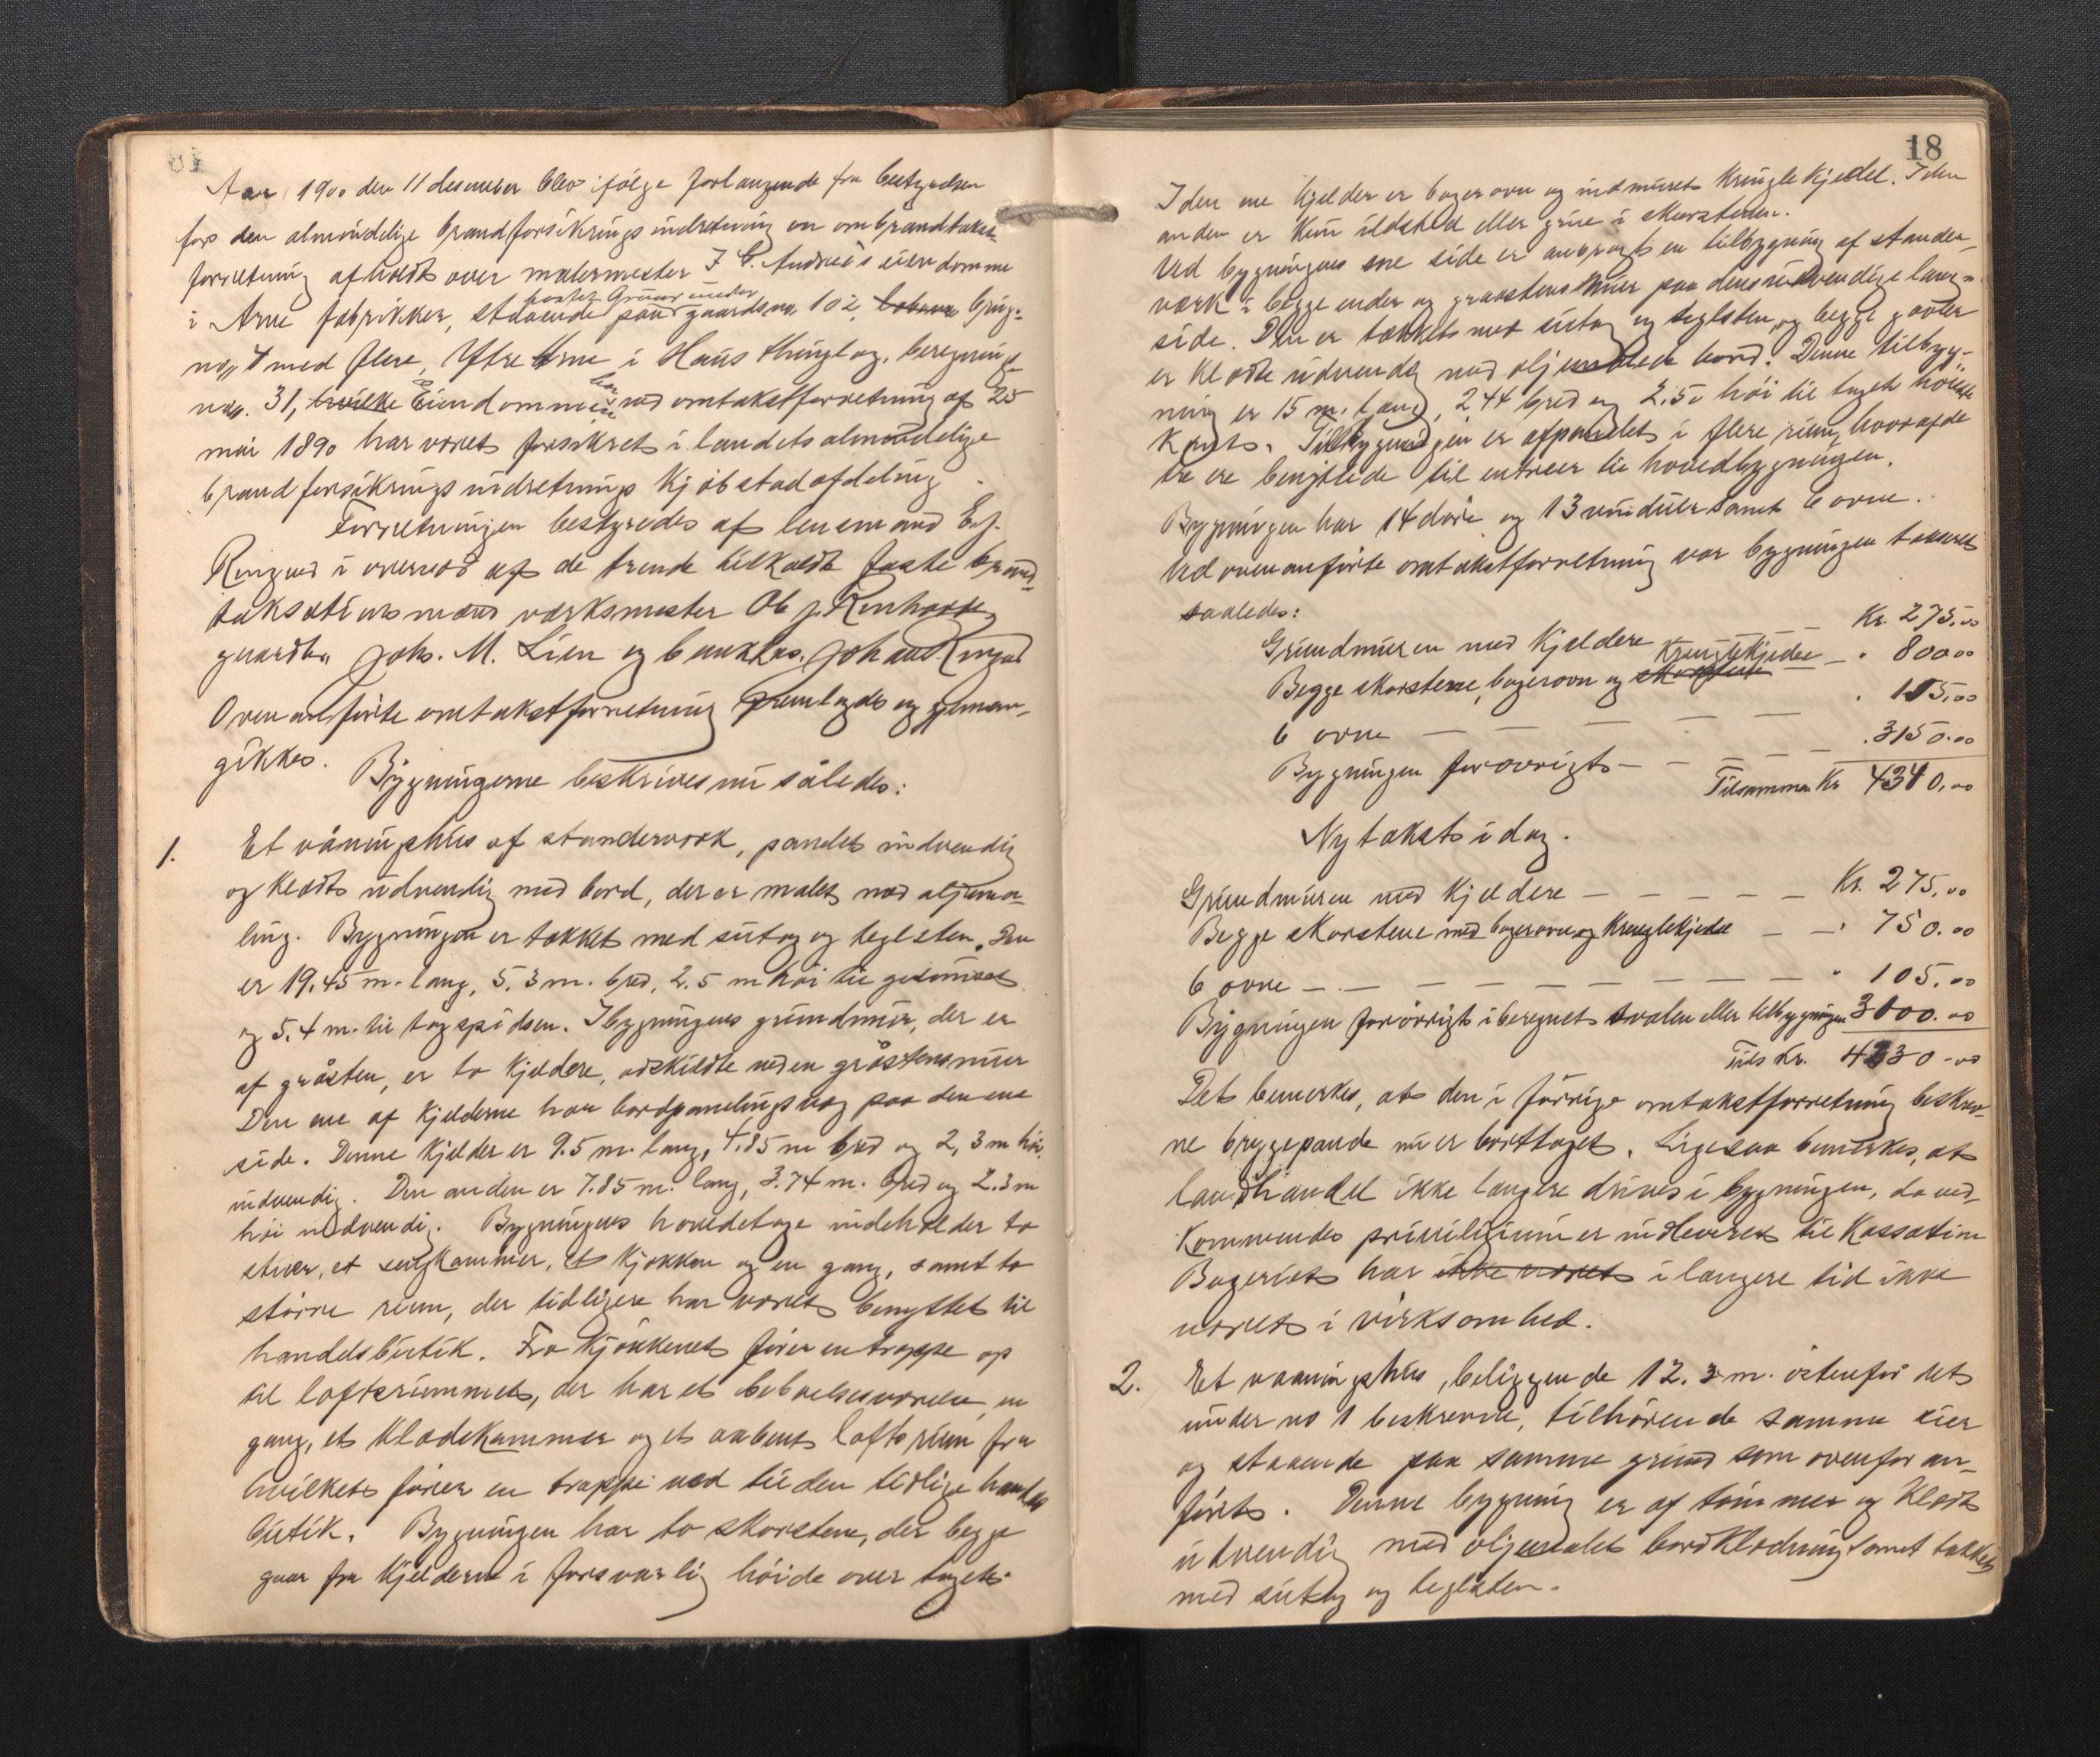 Aar 1900 den 11 desember blev ifølge forlangende fra bestyrelsen
for den almindelige brandforsikringsindretning en ombrandtakst-
forretning afholdt over malermester J. C. Andree's eiendomme
i Arne fabrikker, staaende paa gaardsno 102, brugs-
no 4 med flere, Ytre Arne i Haus thinglag, beregnings
no. 31, hvilke Eiendomme har ved omtakstforretning af 25
mai 1890 har været forsikret i landets almindelige
brandforsikrings indretnings Kjøbstadafdeling.
Forretningen bestyredes af lensmand E. J.
Ringard i overvær af de trende tilkaldte faste brand-
taksationsmænd værksmester Ob. J.
gaardbr. Johs. M. Lien og Johan Ringard
Ovenanførte omtakstforretning fremlagdes og gjennem-
gikkes.
Bygningerne beskrives nu således:
1. Et våningshus af standerværk, panelet indvendig
og klædt udvendig med bord, der er malet med oljema-
ling. Bygningen er tækket med sutag og teglsten. Den
er 19.45 m. lang, 5.3 m. bred, 2.5 m høi til gesimset
og 5.4 m. til tagspidsen. I bygningens grundmur, der er
af gråsten, er to kjeldere, adskildte ved en gråstensmur
Den ene af kjelderne har bordpanelingsvæg paa den ene
side. Denne kjelder er 9.5 m. lang, 4.85 m bred og 2,3 m høi
indvendig. Den anden er 7.85 m. lang, 3.74 m. bred og 2.3 m
høi indvendig. Bygningens hovedetage indeholder to
stuer, et sengkammer, et kjøkken og en gang, samt to
større rum, der tidligere har været benyttet til
handelsbutik. Fra kjøkkenet fører en trappe op
til loftsrummet, der har et beboelsesværelse, en
gang, et klædekammer og et aabent loftsrum fra
hvilket fører en trappe ned til den tidlige handels
butik. Bygningen har to skorstene, der begge
gaar fra kjelderne i forsvarlig høide over taget.
18
I den ene kjelder er bagerovn og indmuret kringlekjedel. I den
anden er kun ildsted eller grue i skorstenen.
Ved bygningens ene side er anbragt en tilbygning af stander-
værk i begge ender og graastens mur paa den udvendige lang-
side. Den er tækket med sutag og teglsten, og begge gavler
er klædte udvendig med oljemalede bord. Denne tilbyg-
ning er 15 m. lang, 2.44 bred og 2.50 høi til taget høieste
kant. Tilbygningen er afpanelet i flere rum, hvoraf de
to ere benyttede til entreer til hovedbygningen.
Bygningen har 14 døre og 13 vinduer samt 6 ovne.
Ved ovenanførte omtakstforretning var bygningen takseret
saaledes:
Grundmuren med kjeldere — — Kr. 275,00
Begge skorstene, bagerovn og skorstene kringlekjedel — " 800 00
6 ovne — — — — — " 115,00
Bygningen forøvrigt — — — " 3150.00
Tilsammen Kr 4340,00
Ny takst i dag.
Grundmuren med kjeldere — — — — — Kr. 275,00
Begge skorstene med bagerovn og kringlekjedel — — " 750.00
6 ovne — — — — — — — — — " 105.00
Bygningen forøvrigt iberegnet svalen eller tilbygningen 3100.00
Tils Kr. 4230-00
Det bemerkes, at den i forrige omtakstforretning beskrev-
ne bryggepande nu er borttaget. Ligesaa bemerkes, at
landhandel ikke længere drives i bygningen, da ved-
kommendes privilegium er indleveret til kassation
Bageriet har ikke været i længere tid ikke
været i virksomhed.
2. Et vaaningshus, beliggende 12.3 m. østenfor det
under no 1 beskrevne, tilhørende samme eier
og staaende paa samme grund som ovenfor an-
ført. Denne bygning er af tømmer og klædt
udvendig med oljemalet bordklædning samt tækket
med sutag og teglsten.